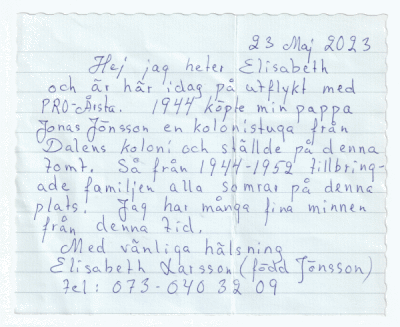 23 Maj 2023
Hej jag heter Elisabeth
och är här idag på utflykt med
PRO-Årsta. 1944 köpte min pappa
Jonas Jönsson en kolonistuga från
Dalens koloni och ställde på denna
tomt. Så från 1944-1952 tillbring-
ade familjen alla somrar på denna
plats. Jag har många fina minnen
från denna tid.
Med vänliga hälsning
Elisabeth Larsson (född Jönsson)
tel: 073-040 32 09